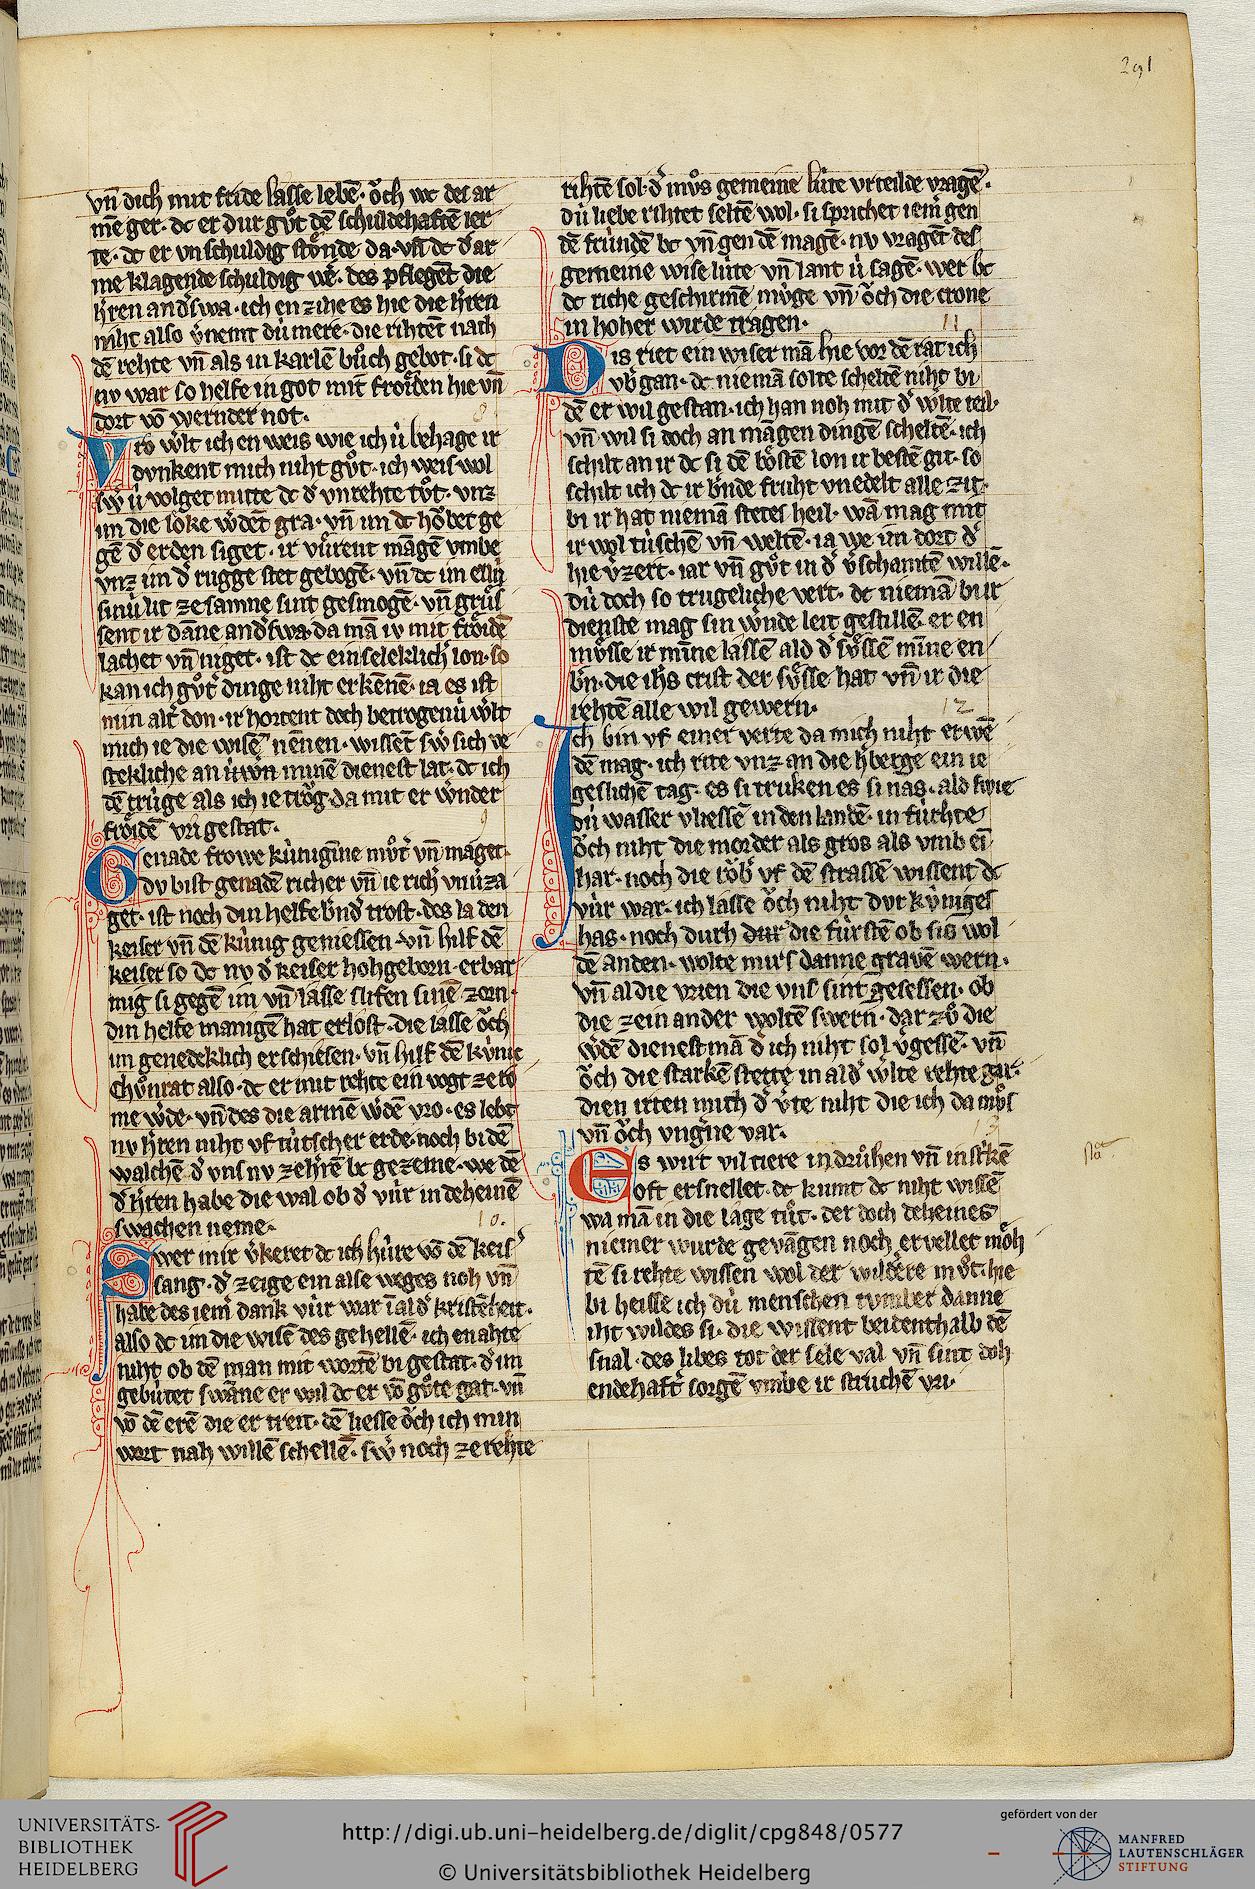 291
vn̄ dich mit fride lasse lebē· ǒch wc des ar
mē ger· dc er dur gůt dē schuldehaftē ler
te· dc er vnschuldig stůnde da· vn̄ dc d͛ ar
me klagende schuldig w͛e· des pflegent die
h͛ren and͛swa· ich en zihe es hie die h͛ren
niht also v͛nemt dú mere· die rihtet nach
dē rehte vn̄ als in karlē bůch gebot· si dc
nv war so helfe in got mit frǒiden hie vn̄
dort vō wernder not·
Vro w͛lt ich en weis wie ich ú behage ir
dvnkent mich niht gůt· ich weis wol
sw͛ ú volget mitte dc d͛ vnrehte tůt· vnz
im die lőke w͛dēt gra· vn̄ im dc hǒbet ge
gē d͛ erden siget· ir vůrent māgē vmbe
vnz im d͛ rugge stet gebogē· vn̄ dc im ellú
sinú lit zesamne sint gesmogē· vn̄ grůs
sent ir dāne and͛swa· da mā iv mit frǒidē
lachet vn̄ niget· ist dc ein seleklich͛ lon· so
kan ich gůt͛ dinge niht erkēnē· ia es ist
min alt͛ don· ir hortent doch betrogenú w͛lt
mich ie die wisē nēnen· wissēt sw͛ sich ve
stekliche an úw͛n minē dienest lat· dc ich
dē trúge als ich ie trǒg· da mit er w͛nder
frǒidē vri gestat·
Genade frowe kúnigīne můt͛ vn̄ maget·
dv bist genadē richer vn̄ ie rich͛ vnu͛za
get· ist noch din helfe b͛nd͛ trost· des la den
keiser vn̄ dē kúnig geniessen· vn̄ hilf dē
keiser so dc nv d͛ keiser hohgeborn· erbar
mig si gegē im vn̄ lasse slifen sinē zorn·
din helfe manigē hat erlost· die lasse ǒch
im genedeklich erschiesen· vn̄ hilf dē kúnic
Chůnrat also· dc er mit rehte ein vogt ze ro
me w͛de· vn̄ des die armē w͛dē vro· es lebt
nv h͛ren niht vf tútscher erde· noch bi dē
walchē d͛ vns nv ze h͛rē bc gezeme· we dē
d͛ h͛ren habe die wal ob d͛ vúr in deheinē
swachen neme·
10.
Swer mir v͛keret dc ich húre vō dē keis͛
sang· d͛ zeige ein alse weges noh vn̄
habe des iem͛ dank vúr war ī ald͛ kristēheit·
also dc im die wisē des gehellē· ich en ahte
niht ob dē man mit wortē bi gestat· d͛ im
gebútet swāne er wil dc er vō gůte gat· vn̄
vō dē erē die er treit· dē liesse ǒch ich min
wort nah willē schellē· sw͛ noch ze rehte
rihtē sol· d͛ můs gemeine lúte vrteilde vragē·
dú liebe rihtet seltē wol· si sprichet iem͛ gen
dē frúndē bc vn̄ gen dē magē· nv vragēt des
gemeine wise lúte vn̄ lant ú sagē· wer bc
dc riche geschirmē mv́ge vn̄ ǒch die crone
in hoher wirde tragen·
11
Dis riet ein wiser mā hie vor dē rat ich
v͛b͛gan· dc niemā solte scheltē niht bi
dē er wil gestan· ich han noh mit d͛ w͛lte teil·
vn̄ wil si doch an māgen dingē scheltē· ich
schilt an ir dc si dē bőstē lon ir bestē git· so
schilt ich dc ir b͛nde fruht vnedelt alle zit·
bi ir hat niemā stetes heil· wā mag mit
ir wol túschē vn̄ weltē· ia we im dort d͛
hie v͛zert· iar vn̄ gůt in d͛ v͛schamtē willē·
dú doch so trugeliche vert· dc niemā bi ir
dienste mag sin w͛nde leit gestillē· er en
můsse ir mīne lassē ald d͛ sůssē mīne en
b͛n· die ih̄s crist der sůsse hat vn̄ ir die
rehtē alle wil gewern·
12
Ich bin vf einer verte da mich niht erwē
dē mag· ich rite vnz an die h͛berge ein ie
geslichē tag· es si truken es si nas· ald swie
dú wasser vliessē in den landē· in fúrhte
ǒch niht die morder als gros als vmb eī
har· noch die rǒb͛ vf dē strassē wissent dc
vúr war· ich lasse ǒch niht dvr kv́niges
has· noch durh dur die fúrstē ob sis wol
dē anden· wolte mirs danne gravē wern·
vn̄ al die vrien die vns sint gesessen· ob
die ze einander woltē swern· dar zů die
w͛dē dienestmā d͛ ich niht sol v͛gessē· vn̄
ǒch die starkē stette in ald͛ w͛lte rehte gar·
dien irten mich d͛ v͛te niht die ich da můs
vn̄ ǒch vng͛ne var·
13
Es wirt vil tiere in drůhen vn̄ in strikē
oft ersnellet· dc kumt dc niht wissē
wa mā in die lage tůt· der doch deheines
niemer wurde gevāgen noch ervellet mőh
tē si rehte wissen wol der wild͛ere mv̊t· hie
bi heisse ich dú menschen tvmber danne
iht wildes si· die wissent beidenthalb dē
snal· des libes tot der sele val vn̄ sint doh
endehaft͛ sorgē vmbe ir struchē vri·
UNIVERSITÄTS-
BIBLIOTHEK
HEIDELBERG
http://digi.ub.uni-heidelberg.de/diglit/cpg848/0577
© Universitätsbibliothek Heidelberg
gefördert von der
MANFRED
LAUTENSCHLÄGER
STIFTUNG